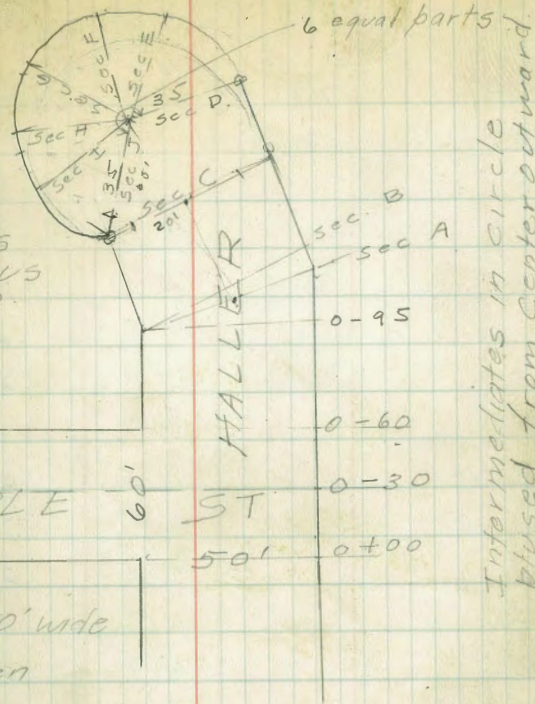 6 equal parts
Sec F
Sec E
Sec G
35
Sec D.
Sec H
Sec I
Sec J
35
Sec C
20'
Sec B
Sec A
HALLER
ST
0-95
0-60
0-30
0+00
60'
50'
LE
0' wide
en
S
US
Intermediates in circle
plused from Center outward.